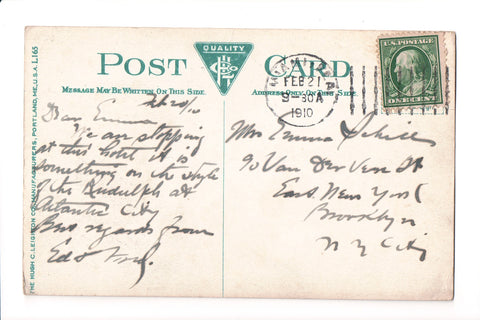 POST CARD
QUALITY
MESSAGE MAY BE WRITTEN ON THIS SIDE.
ADDRESS ONLY ON THIS SIDE.
THE HUGH C. LEIGHTON CO., MANUFACTURERS, PORTLAND, ME., U.S.A. L165
FEB 21
9-30A
1910
U.S. POSTAGE
ONE CENT
Feb 20/10
Dear Emma
We are stopping
at this hotel it is
something on the style
of the Rudolph at
Atlantic City
Best regards from
Ed &
Mrs Emma
90 Van Der Veer St
East New York
Brooklyn
N Y City